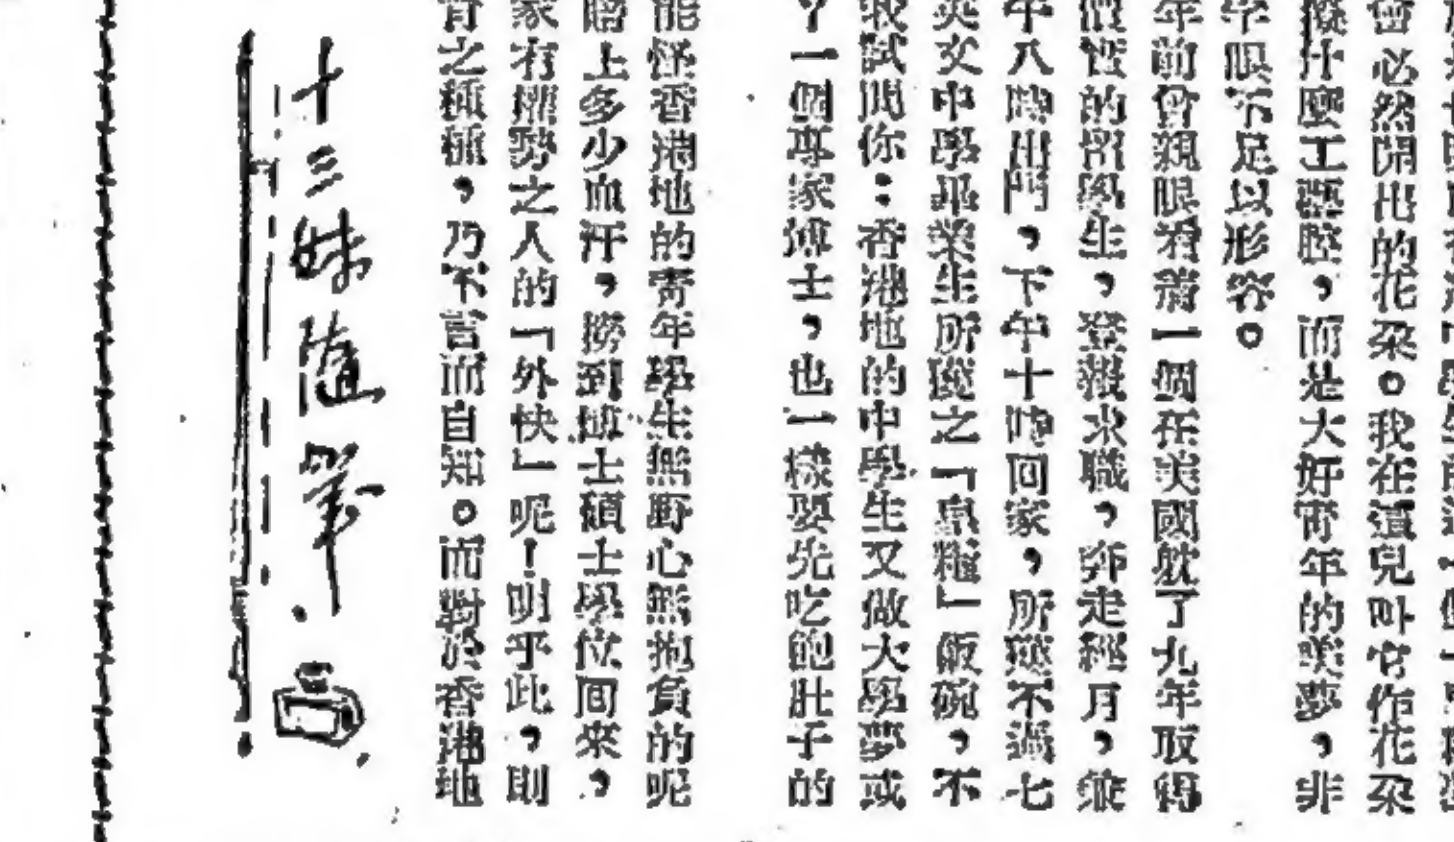 會必然開出的花朶。我在這兒叫它作花朶
什麼工藝腔,而是大好靑年的美夢,非
學眼不足以形容。
年前曾親眼看着一個在美國躭了九年取得
的留學生,登報求職,奔走經月,兼
午八時出門,下午十時回家,所獲不過七
英文中學畢業生所獲之「皇糧」飯碗,不
我試問你:香港地的中學生又做大學夢或
?一個專家博士,也一樣要先吃飽肚子的
能怪香港地的靑年學生無野心無抱負的呢
賠上多少血汗,撈到博士碩士學位回來,
家有權勢之人的「外快」呢!明乎此,則
育之種種,乃不言而自知。而對於香港地
十三妹隨筆